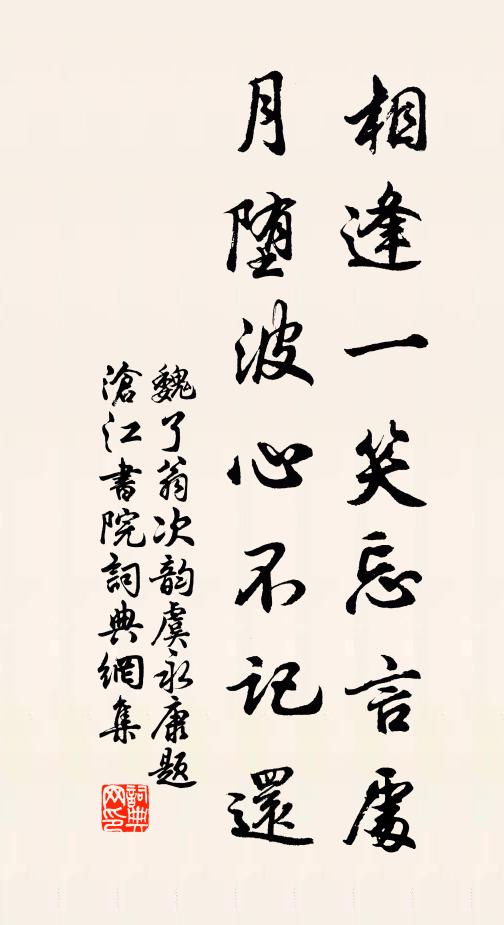 相逢一笑忘言處
月堕波心不記還
魏了翁次韵虞永康題
滄江書院詞典網集
詞典网印